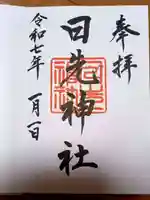 奉拝
日先神社
令和七年 一月一日